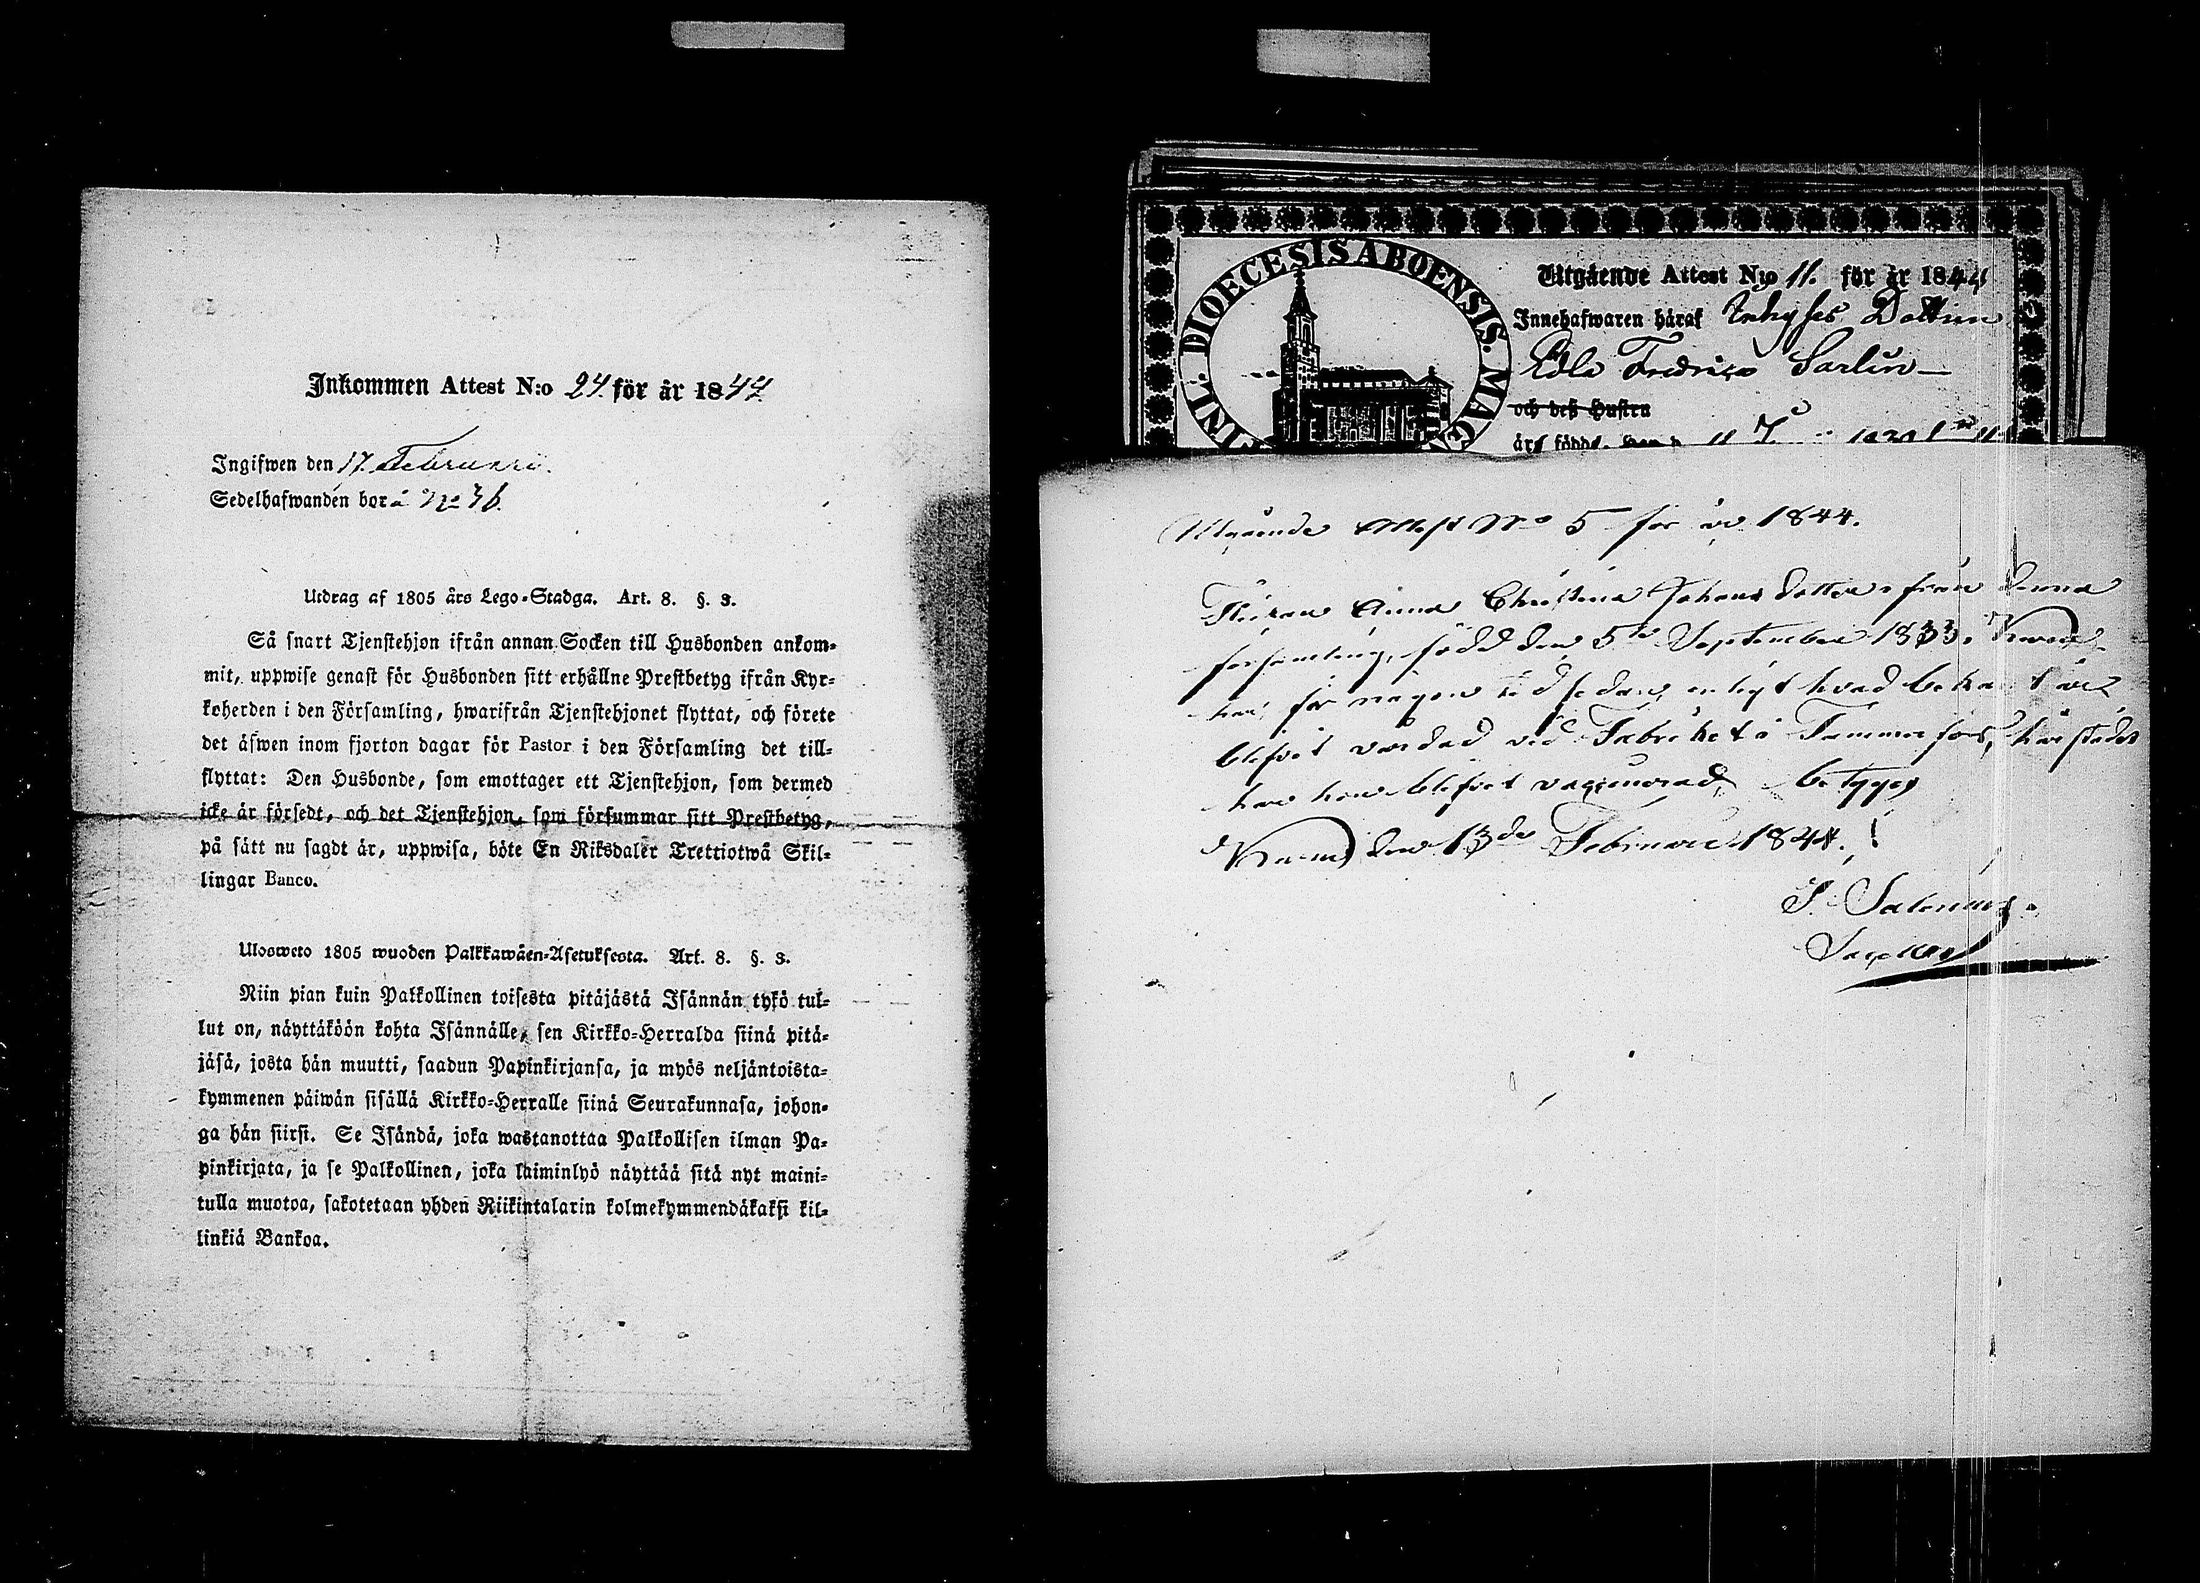 Inkommen Attest N:o 24. för år 1844
Ingifwen den 17. Februari.
Sedelhafwanden bor å No 36.
Utdrag af 1805 års Lego-Stadga. Art. 8. §. 3.
Så snart Tjenstehjon ifrån annan Socken till Husbonden ankom-
mit, uppwise genast för Husbonden sitt erhållne Prestbetyg ifrån Kyr-
koherden i den Församling, hwarifrån Tjenstehjonet flyttat, och förete
det äfwen inom fjorton dagar för Pastor i den Församling det till-
flyttat: Den Husbonde, som emottager ett Tjenstehjon, som dermed
icke är försedt, och det Tjenstehjon, som försummar sitt Prestbetyg,
på sätt nu sagdt är, uppwisa, böte En Riksdaler Trettiotwå Skil-
lingar Banco.
Ulosweto 1805 wuoden Palkkawäen-Asetuksesta. Art. 8. §. 3.
Niin pian kuin Palkollinen toisesta pitäjästä Isännän tykö tul-
lut on, näyttäköön kohta Isännälle, sen Kirkko-Herralda siinä pitä-
jäsä, josta hän muutti, saadun Papinkirjansa, ja myös neljäntoista-
kymmenen päiwän sisällä Kirkko-Herralle siinä Seurakunnasa, johon-
ga hän siirsi. Se Isändä, joka wastanottaa Palkollisen ilman Pa-
pinkirjata, ja se Palkollinen, joka laiminlyö näyttää sitä nyt maini-
tulla muotoa, sakotetaan yhden Riikintalarin kolmekymmendäkaksi kil-
linkiä Bankoa.
FINL. DIOECESIS ABOENSIS. MAG
Utgående Attest N:o 11. för år 1844
Innehafwaren häraf Dottren
Edla Fredrica Sarlin
och deß Hustru
är född
Utgående Attest No 5 för år 1844.
Flickan Anna Christina Johans dotter från denna
församling, född den 5te September 1833.
har för någon tid sedan, enligt hvad bekant är
blifvit vårdad vid Fabriket i Tammerfors, härstädes
har hon blifvit vaccinerad, betygar
den 13de Februari 1844.